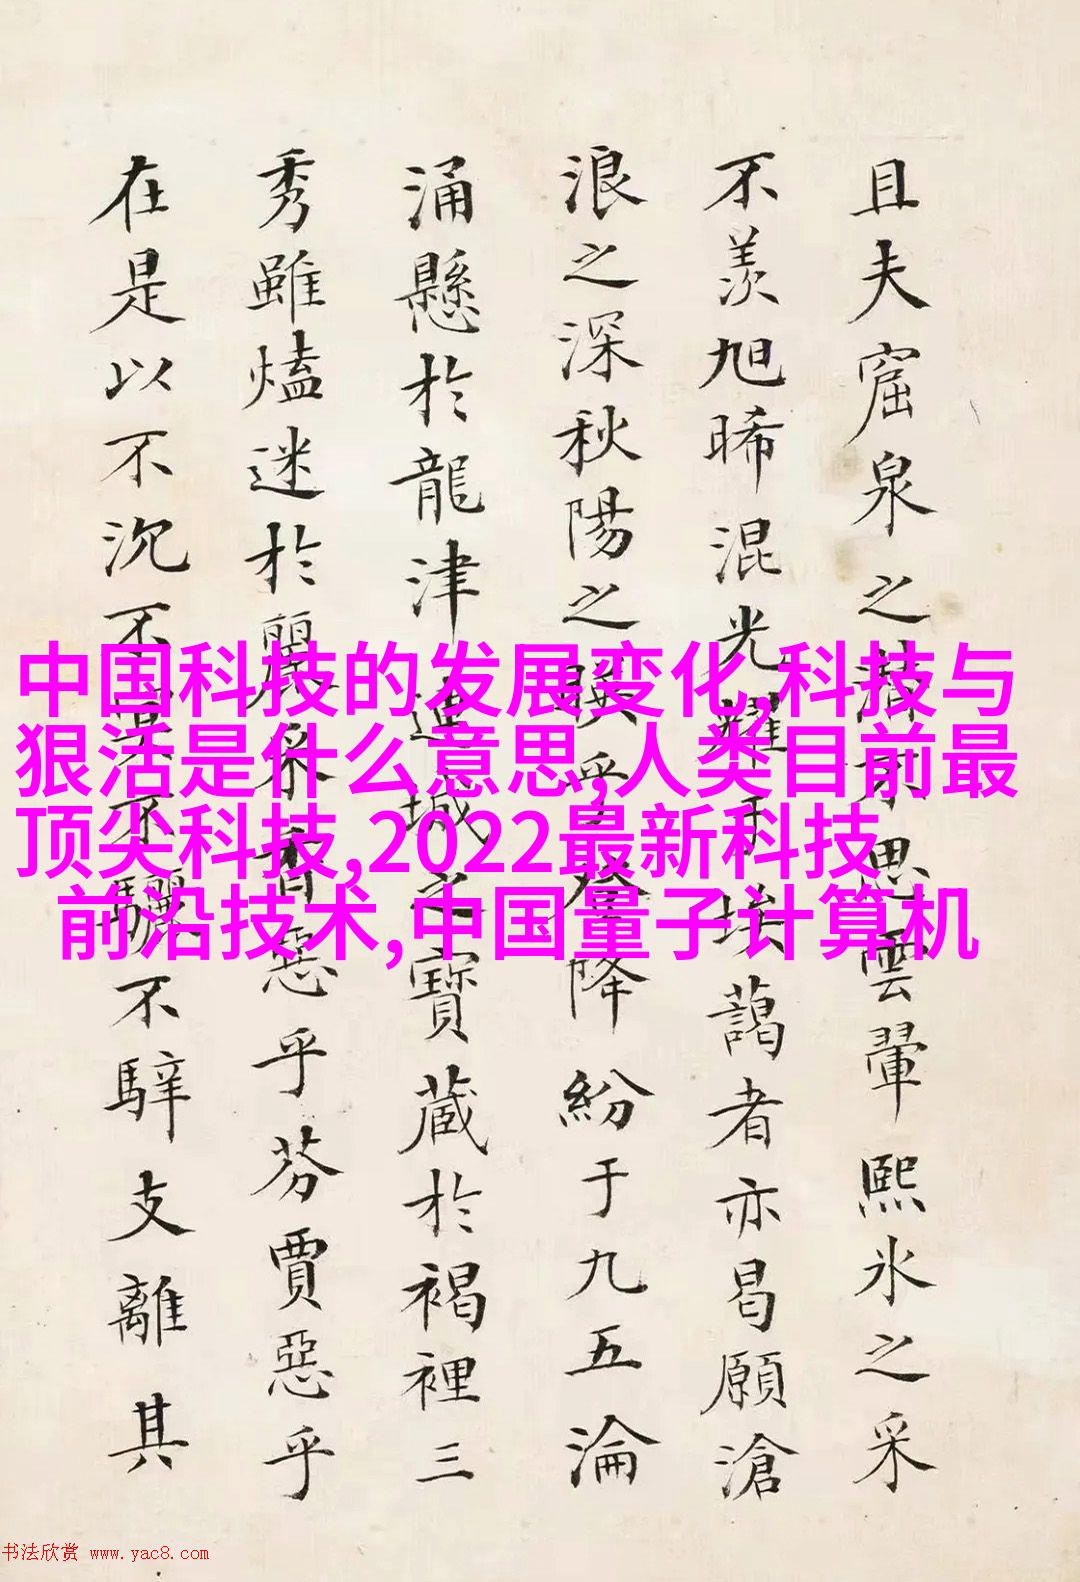 且夫窟泉之清不思雲翬熙氷之采
不羨旭晞混光耀于埃藹者亦曷願滄
浪之深秋陽之暵乎登降紛于九五淪
涌懸於龍津連城之寶蔵於褐裡三
秀雖熆迷於麗采香惡乎芬賈惡乎
在是以不沉不冥不驪不騂支離其
中国科技的发展变化,科技与
狠活是什么意思,人类目前最
顶尖科技,2022最新科技
前沿技术,中国量子计算机
书法欣赏 www.yac8.com